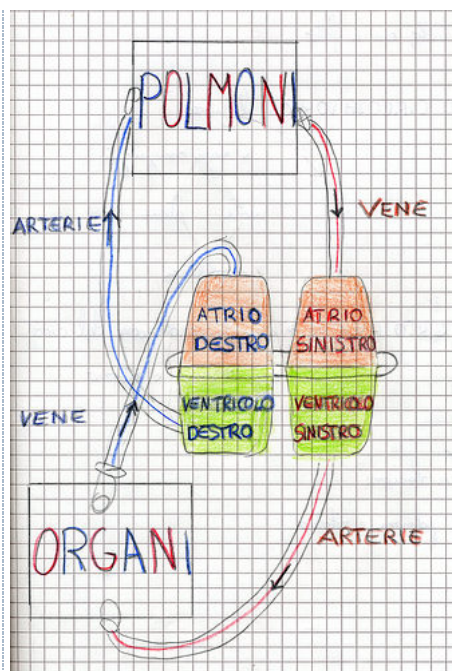 POLMONI
ARTERIE
VENE
ATRIO
DESTRO
ATRIO
SINISTRO
VENTRICOLO
DESTRO
VENTRICOLO
SINISTRO
VENE
ORGANI
ARTERIE